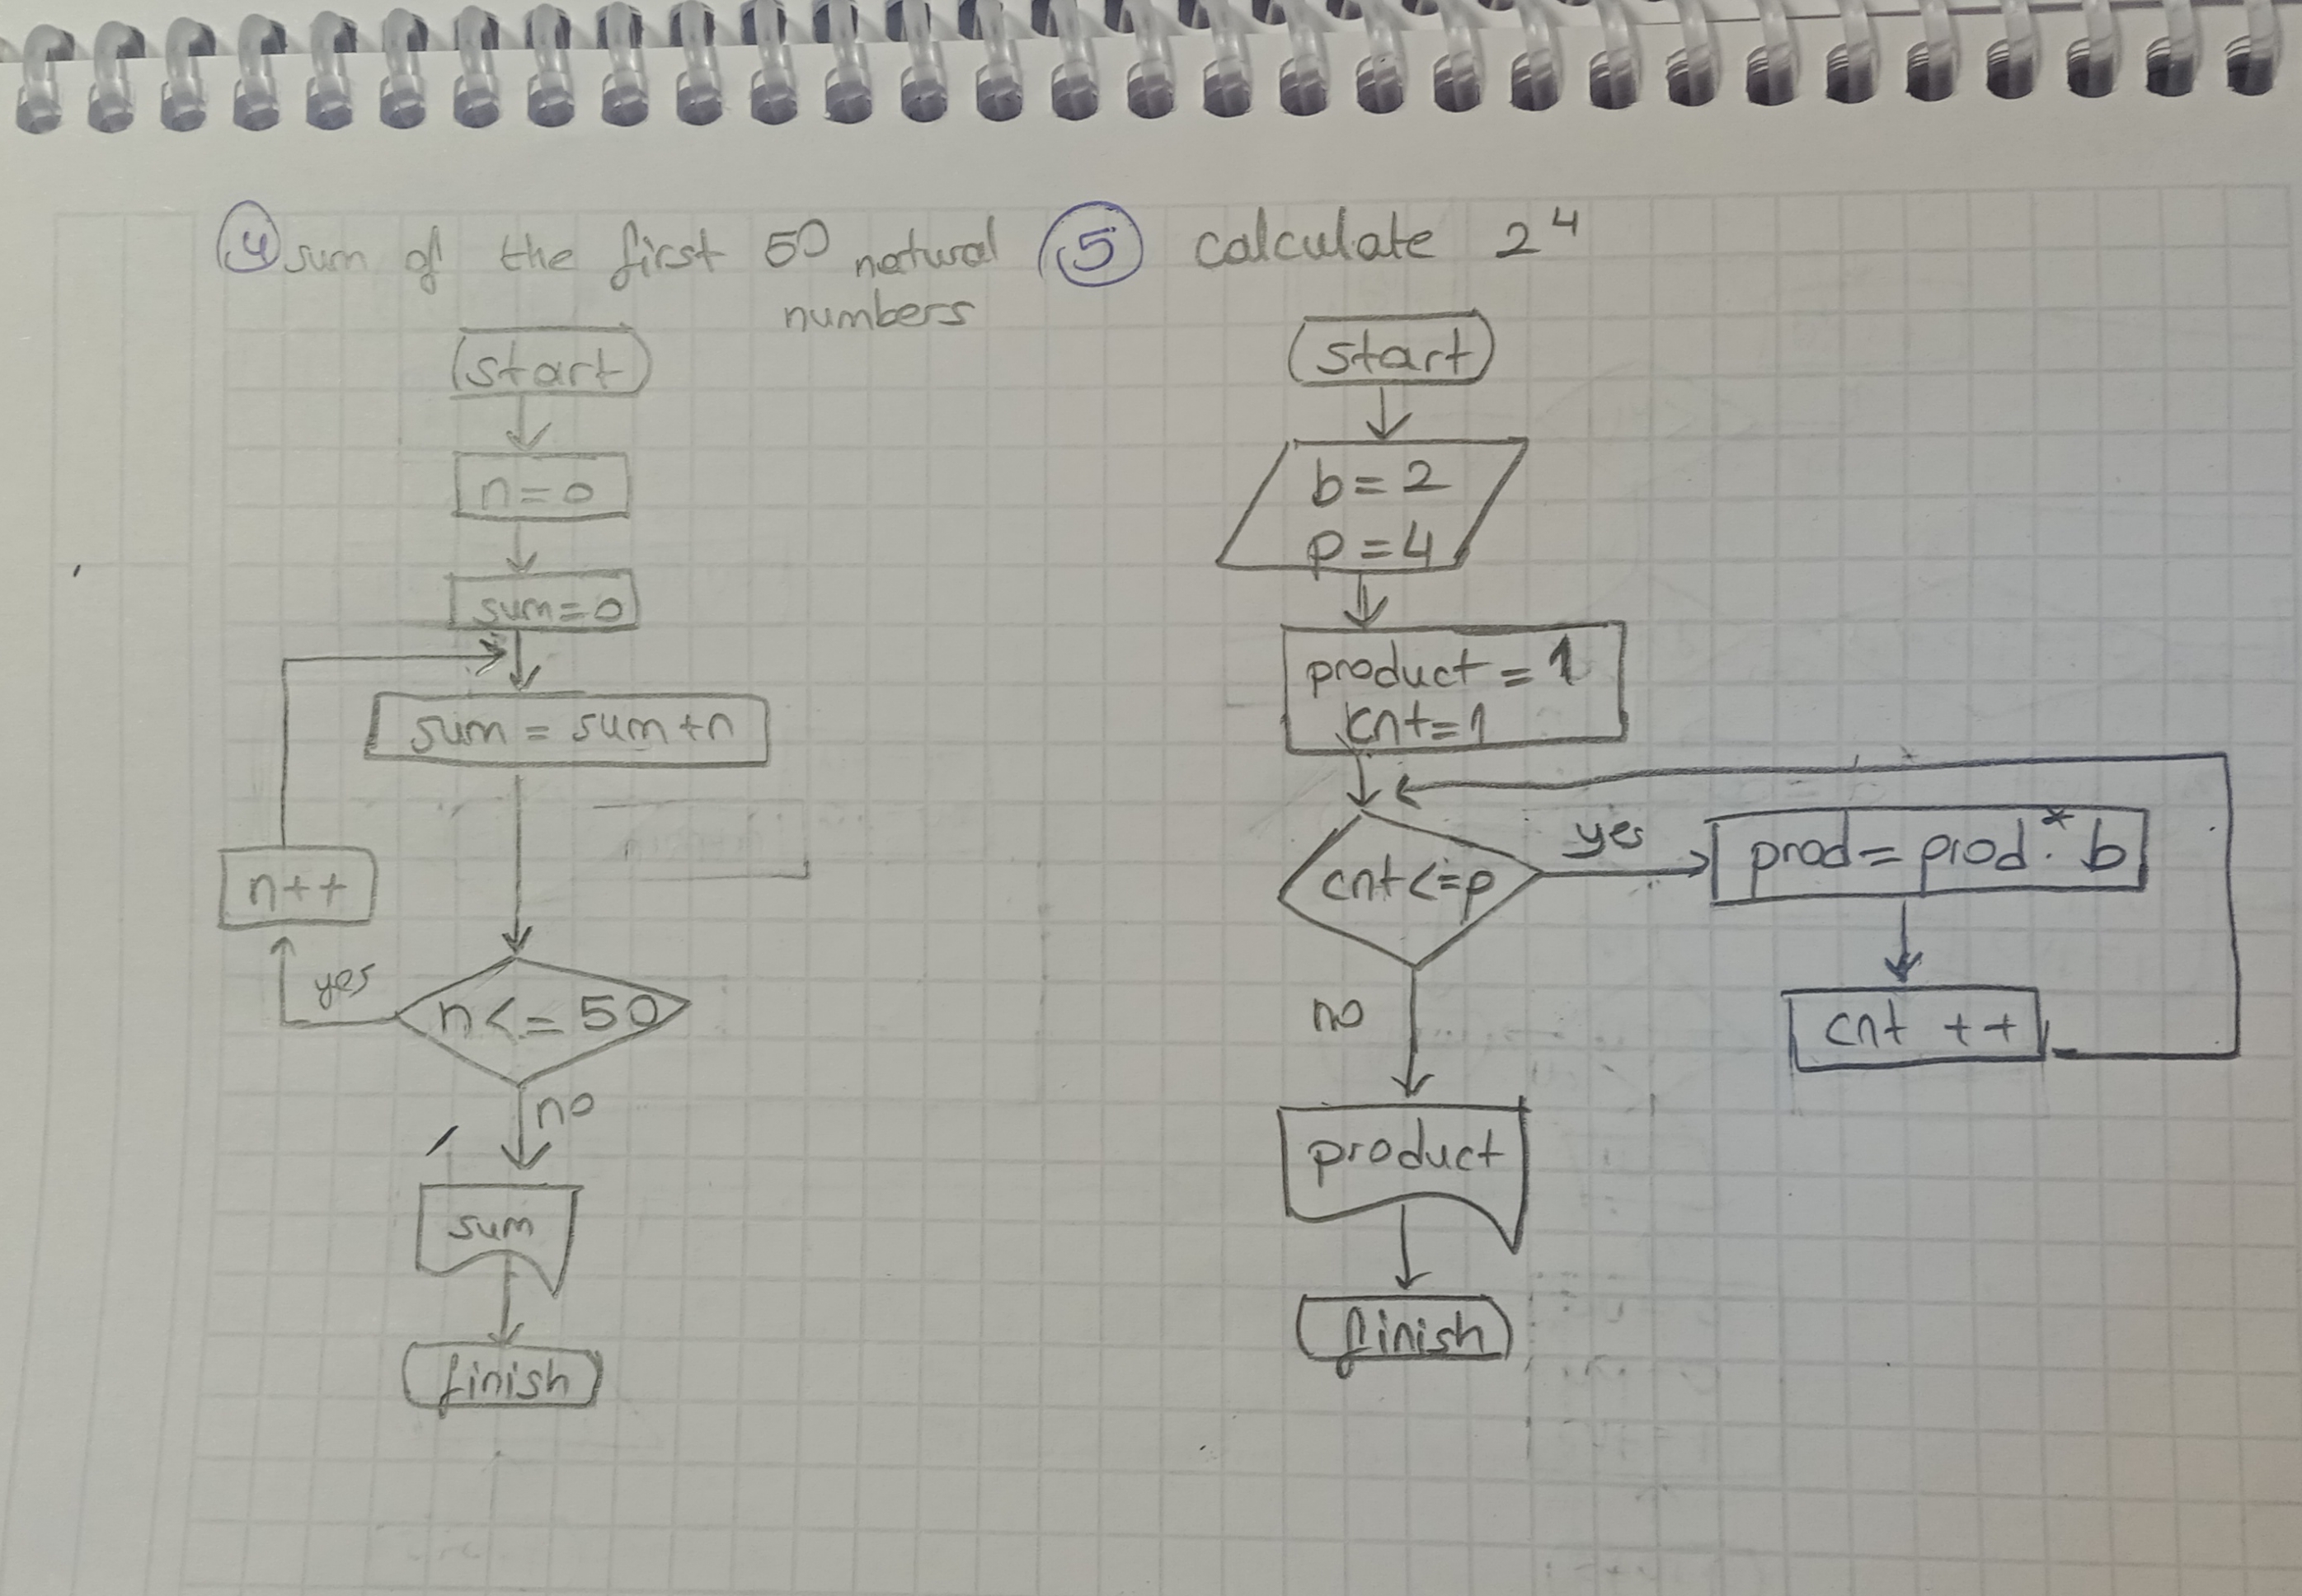 4 sum of the first 50 natural
numbers
start
n=0
sum=0
sum = sum+n
n++
yes
n<=50
no
sum
finish
5 calculate 2⁴
start
b=2
p=4
product = 1
cnt=1
cnt<=p
yes
prod = prod * b
cnt ++
no
product
finish